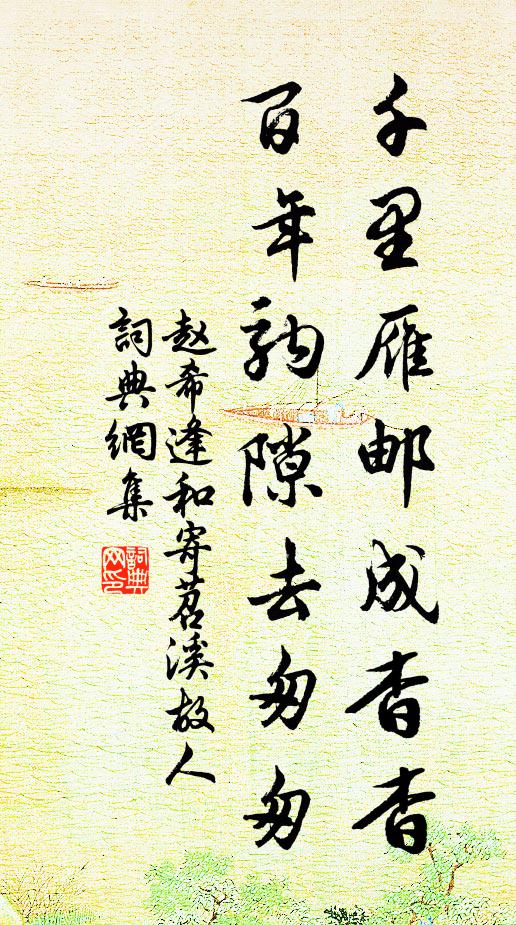 千里雁邮成杳杳
百年駒隙去匆匆
赵希逢和寄苕溪故人
詞典網集
詞典网印